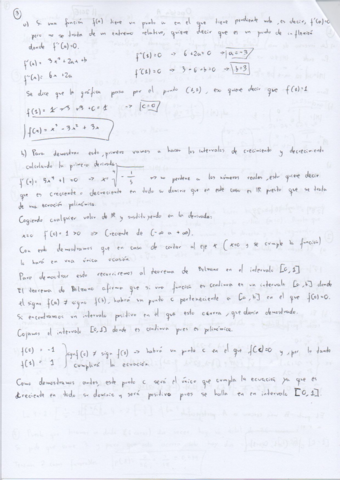 ③
a) Si una función f(x) tiene un punto en el que tiene pendiente nula, es decir, f'(x)=0
pero no se trata de un extremo relativo, quiere decir que es un punto de inflexión
donde f''(x)=0.
f'(x) = 3x² + 2ax + b
f''(x) = 6x + 2a
f''(1)=0 → 6+2a=0 → a=-3
f'(1)=0 → 3-6+b=0 → b=3
Se dice que la gráfica pasa por el punto (1,1), es que quiere decir que f(1)=1
f(1)=1 → 1-3+3+c=1 → c=0
f(x) = x³ - 3x² + 3x
b) Para demostrar esto, primero vamos a hacer los intervalos de crecimiento y decrecimiento
calculando la primera derivada
no pertenece a los números reales, esto quiere decir
que es creciente o decreciente en todo su dominio que en este caso es ℝ puesto que se trata
de una ecuación polinómica.
Cogiendo cualquier valor de ℝ y sustituyendo en la derivada:
→ Creciente de (-∞, +∞).
Con esto demostramos que en caso de cortar al eje x
lo hará en una única ocasión.
Para demostrar esto recurriremos al teorema de Bolzano en el intervalo [0,1]
El teorema de Bolzano afirma que si una función es continua en un intervalo [a,b] donde
el signo f(a) ≠ signo f(b), habrá un punto c perteneciente a [a,b] en el que f(c)=0.
Si encontramos un intervalo positivo en el que esto ocurra, quedaría demostrado.
Cogemos el intervalo [0,1] donde es continua pues es polinómica.
f(0) = -1
f(1) = 1
signo f(0) ≠ signo f(1) → habrá un punto c en el que f(c)=0 y, por lo tanto
cumplirá la ecuación.
Como demostramos antes, este punto c será el único que cumpla la ecuación ya que es
creciente en todo su dominio y será positivo pues se halla en el intervalo [0,1].